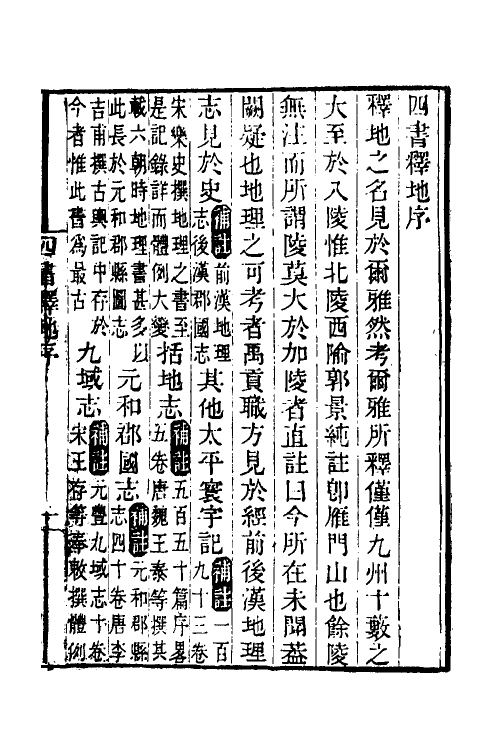 四書釋地序
釋地之名見於爾雅然考爾雅所釋僅僅九州十藪之
大至於八陵惟北陵西隃郭景純註卽雁門山也餘陵
無注而所謂陵莫大於加陵者直註曰今所在未聞蓋
闕疑也地理之可考者禹貢職方見於經前後漢地理
志見於史補註前漢地理志後漢郡國志其他太平寰宇記補註一百九十三卷
宋樂史撰地理之書至是記錄詳而體例大變括地志補註五百五十篇序畧五卷唐魏王泰等撰其
載六朝時地理書甚多以此長於元和郡縣圖志元和郡國志補註元和郡縣志四十卷唐李
吉甫撰古輿記中存於今者惟此書爲最古九域志補註元豐九域志十卷宋王存等奉敕撰體例
四書釋地序
一